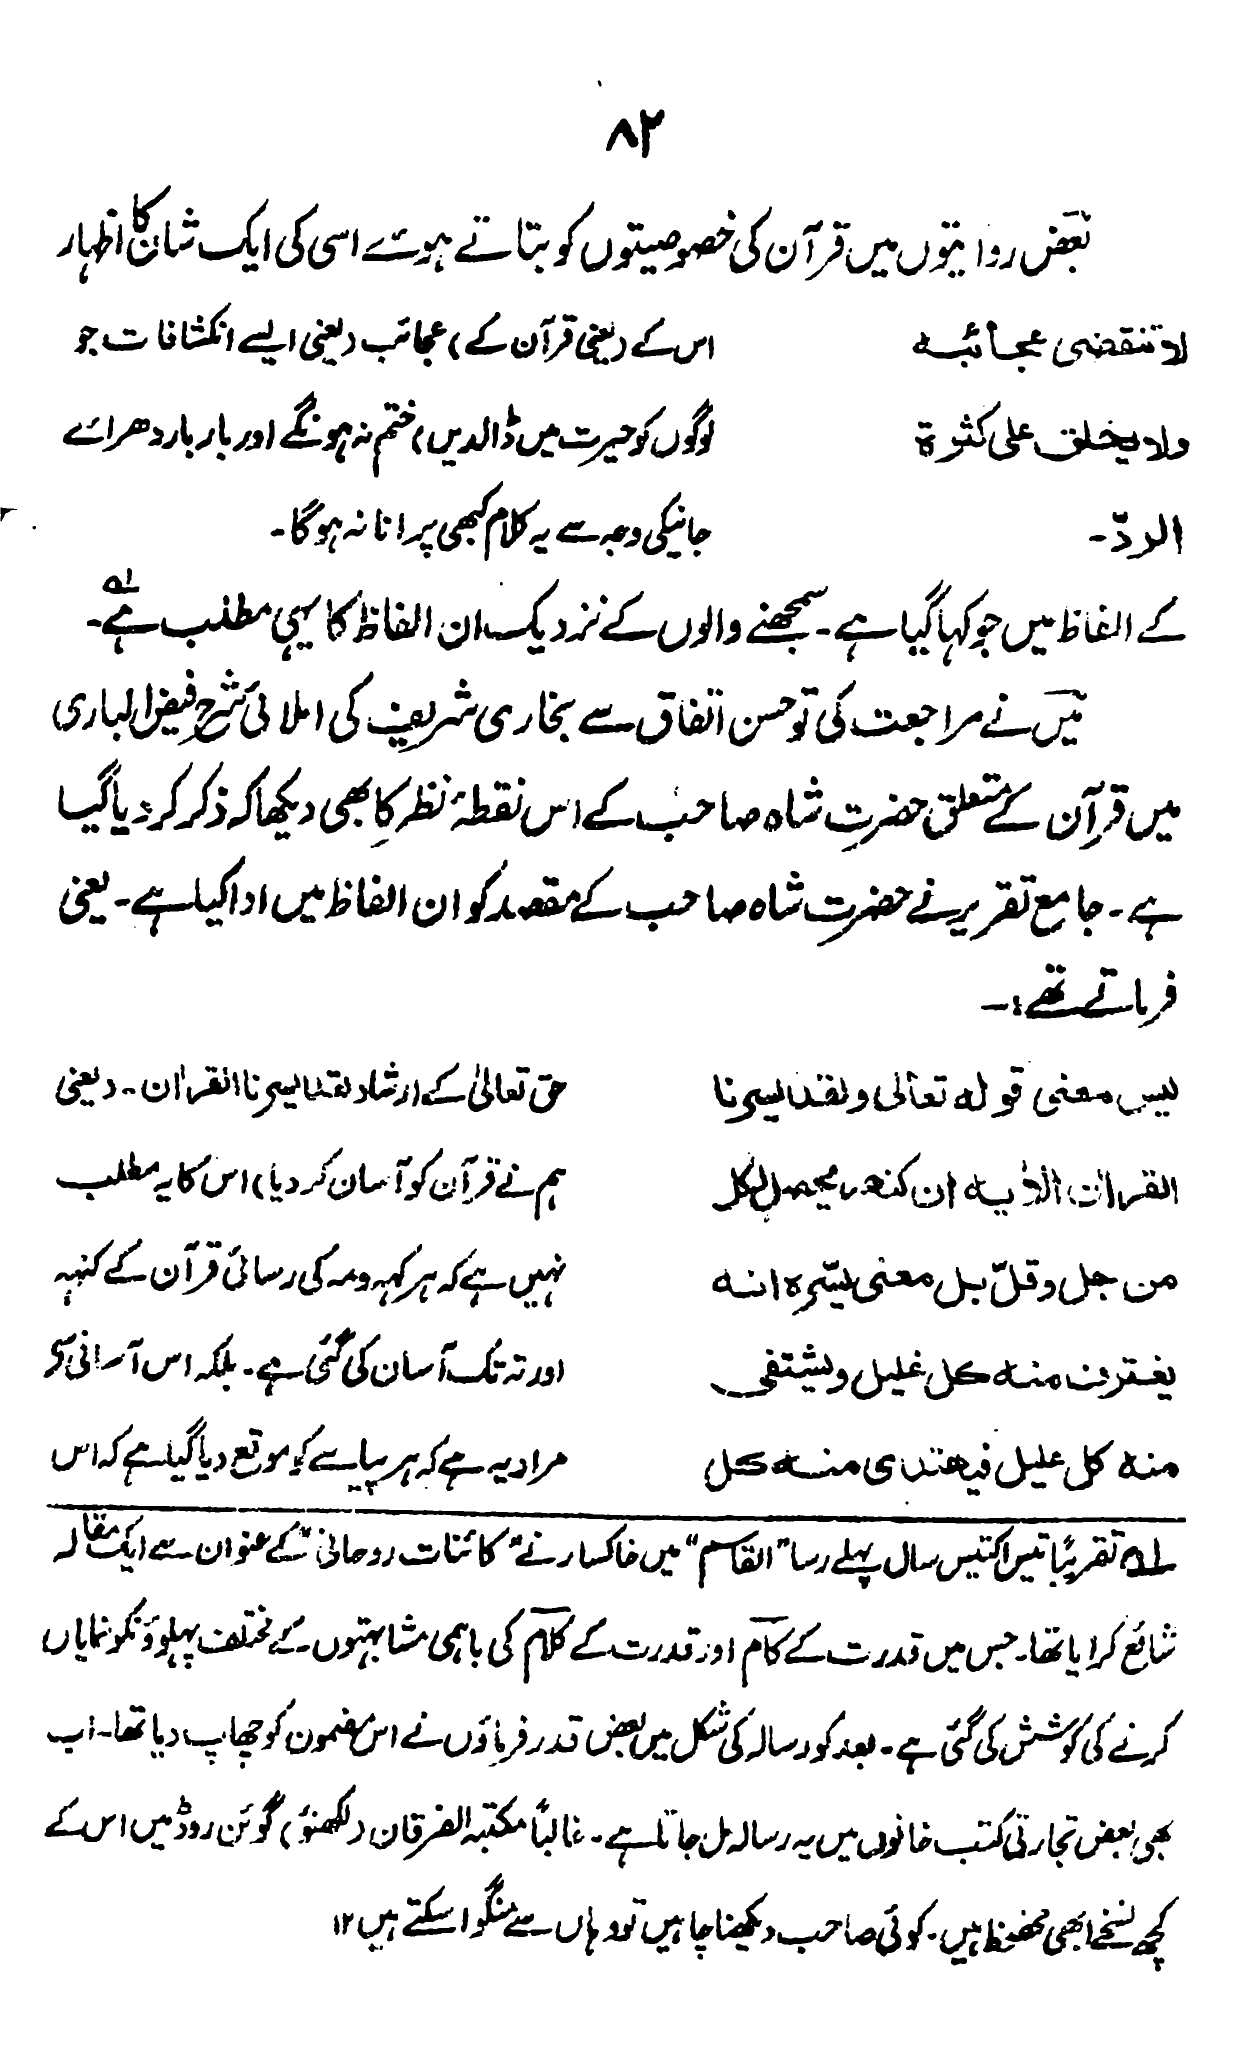 ۸۲
بعض روایتوں میں قرآن کی خصوصیتوں کو بتاتے ہوئے اسی کی ایک شان کا اظہار
لا تنقضی عجائبہ
ولا یخلق علی کثرۃ
الردّ۔
اس کے (یعنی قرآن کے) عجائب (یعنی ایسے انکشافات جو
لوگوں کو حیرت میں ڈالدیں) ختم نہ ہونگے اور بار بار دھرائے
جانیکی وجہ سے یہ کلام کبھی پرانا نہ ہوگا۔
کے الفاظ میں جو کہا گیا ہے۔ سمجھنے والوں کے نزدیک ان الفاظ کا یہی مطلب ہے لہ۔
میں نے مراجعت کی تو حسن اتفاق سے بخاری شریف کی املائی شرح فیض الباری
میں قرآن کے متعلق حضرت شاہ صاحب کے اس نقطۂ نظر کا بھی دیکھا کہ ذکر کر دیا گیا
ہے۔ جامع تقریر نے حضرت شاہ صاحب کے مقصد کو ان الفاظ میں ادا کیا ہے۔ یعنی
فرماتے تھے:۔
لیس معنی قولہ تعالیٰ ولقد یسرنا
القراٰن الاٰیہ ان کنھہ یحصل لکل
من جل وقلّ بل معنی یسّرہ انہ
یغترف منہ کل غلیل ویشتفی
منہ کل علیل فیھتدی منہ کل
حق تعالیٰ کے ارشاد لقد یسرنا القراٰن۔ (یعنی
ہم نے قرآن کو آسان کر دیا) اس کا یہ مطلب
نہیں ہے کہ ہر کہہ ومہ کی رسائی قرآن کے کنہہ
اور تہ تک آسان کی گئی ہے۔ بلکہ اس آسانی کی
مراد یہ ہے کہ ہر پیاسے کو موقع دیا گیا ہے کہ اس
لہ تقریباً تیس اکتیس سال پہلے رسا "القاسم" میں خاکسار نے "کائنات روحانی" کے عنوان سے ایک مقالہ
شائع کرایا تھا۔ جس میں قدرت کے کام اور قدرت کے کلام کی باہمی مشابہتوں کے مختلف پہلوؤنکو نمایاں
کرنے کی کوشش کی گئی ہے۔ بعد کو رسالہ کی شکل میں بعض قدر فرماؤں نے اس مضمون کو چھاپ دیا تھا۔ اب
بھی بعض تجارتی کتب خانوں میں یہ رسالہ مل جاتا ہے۔ غالباً مکتبہ الفرقان (لکھنؤ) گوئن روڈ میں اس کے
کچھ نسخے ابھی محفوظ ہیں۔ کوئی صاحب دیکھنا چاہیں تو وہاں سے منگوا سکتے ہیں ۱۲